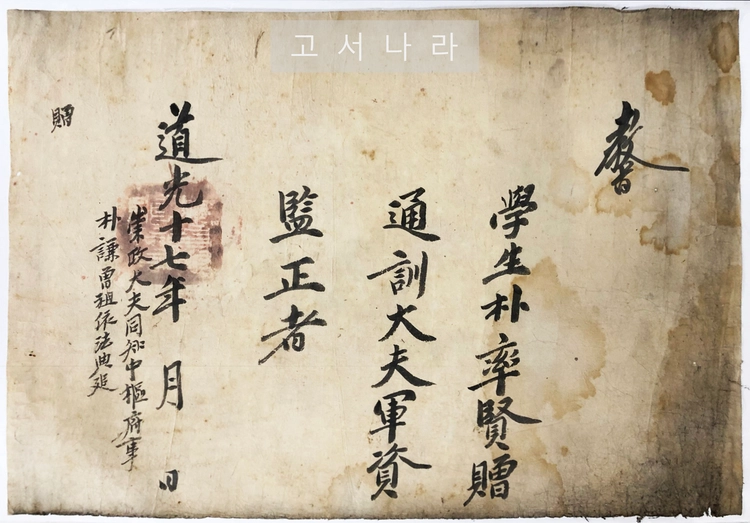 고서나라
敎旨
學生朴率賢贈
通訓大夫軍資
監正者
道光十七年 月 日
崇政大夫同知中樞府事
朴謙曾祖依法典追
贈